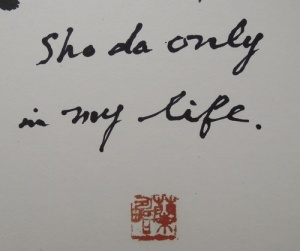 Sho da only
in my life.